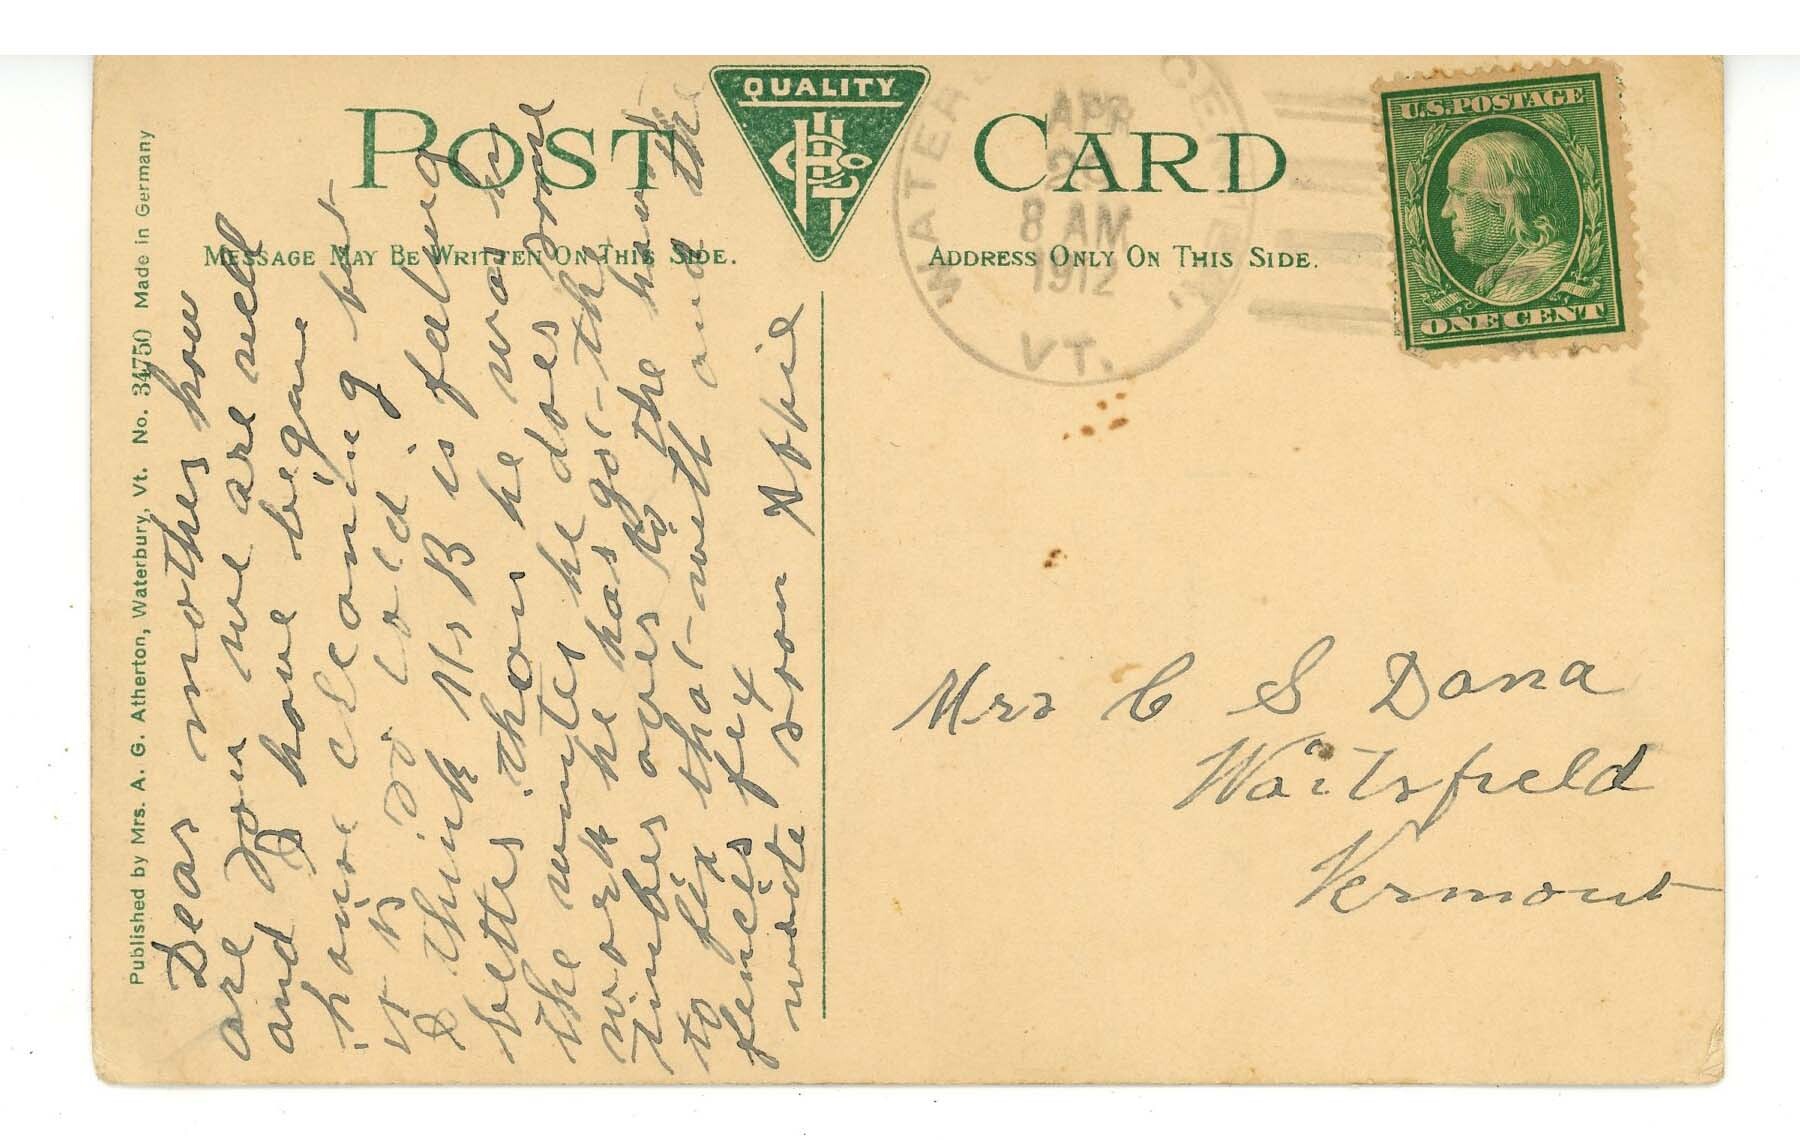 Published by Mrs. A. G. Atherton, Waterbury, Vt. No. 34750 Made in Germany
POST CARD
QUALITY
MESSAGE MAY BE WRITTEN ON THIS SIDE.
ADDRESS ONLY ON THIS SIDE.
WATER CENTER,
APR
8 AM
1912
VT.
U.S. POSTAGE
ONE CENT
Dear mother how
are you we are well
and I have began
house cleaning but
it is so cold
I think Mr B is faling
better than he was in
the winter he does some
work he has got the
timber over to the house
to fix that with and the
fences fix
write soon Abbie
Mrs C S Dana
Waitsfield
Vermont